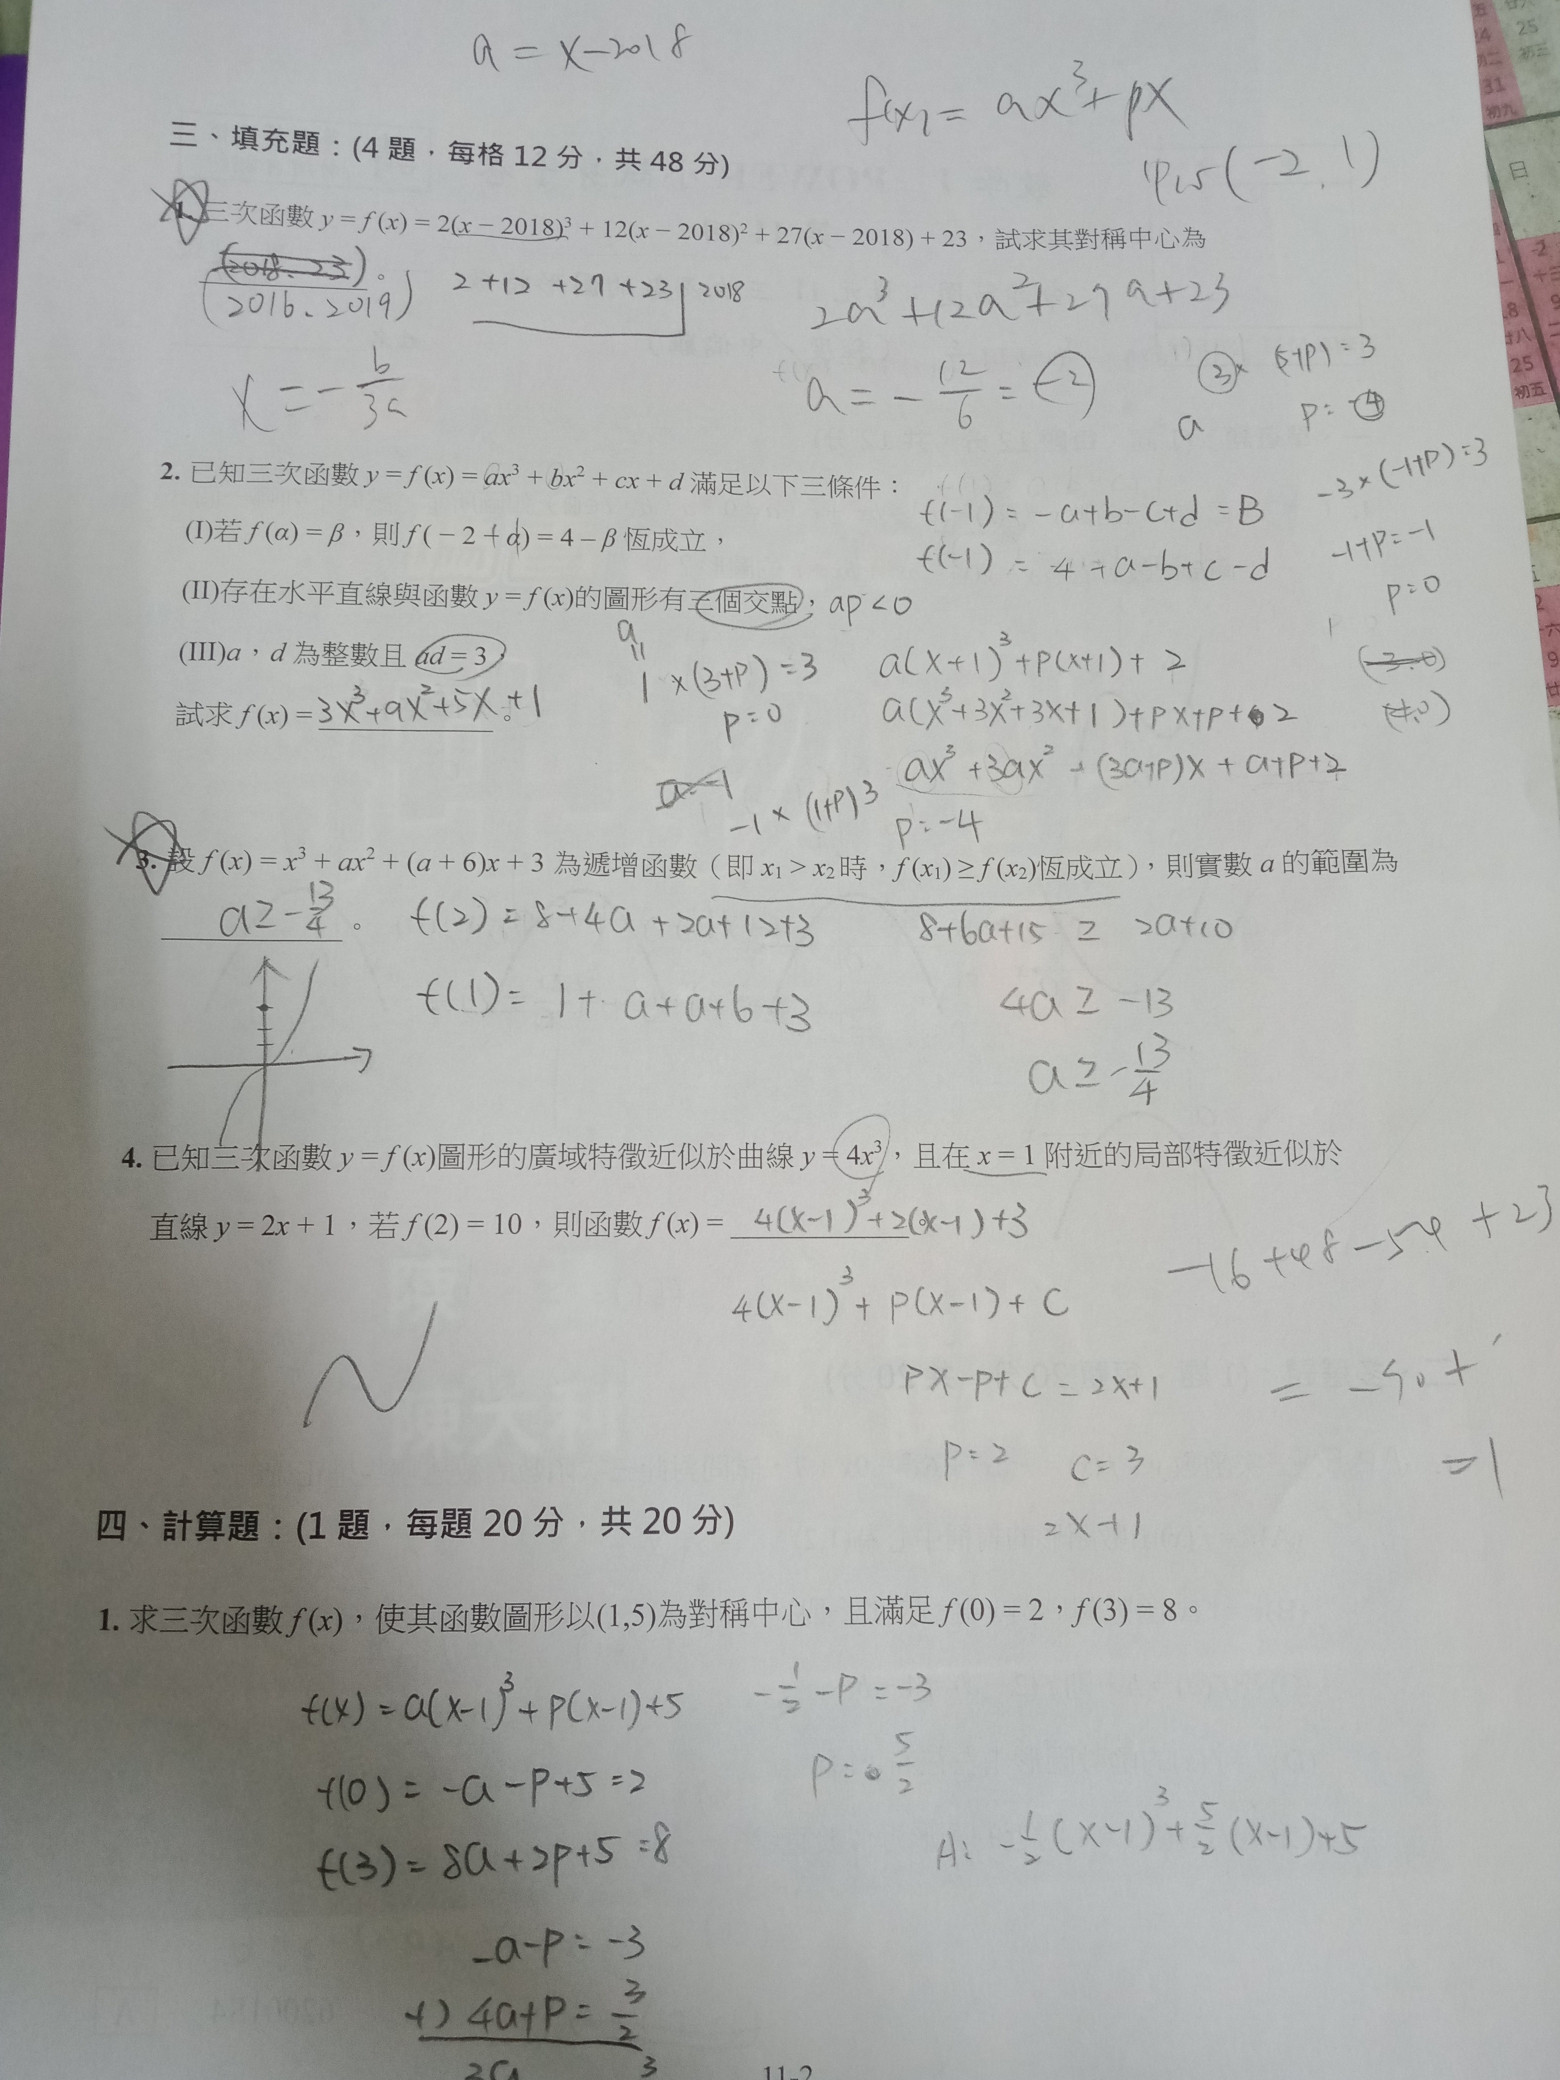 a = x-2018
f(x) = ax³+px
中心(-2,1)
三、填充題：(4 題，每格 12 分，共 48 分)
1. 三次函數 y = f (x) = 2(x − 2018)³ + 12(x − 2018)² + 27(x − 2018) + 23，試求其對稱中心為
(2018、23)。
(2016、2019)
2+12+27+23 | 2018
2a³+12a²+27a+23
x = -b/3a
a = -12/6 = -2
p = -4
2. 已知三次函數 y = f (x) = ax³ + bx² + cx + d 滿足以下三條件：
f(-1) = -a+b-c+d = B
-3×(-1+p)=3
(I)若 f (α) = β，則 f ( − 2 − α) = 4 − β 恆成立，
f(-1) = 4+a-b+c-d
-1+p=-1
p=0
(II)存在水平直線與函數 y = f (x)的圖形有三個交點，
ap<0
(III)a，d 為整數且 ad = 3，
a
1×(3+p)=3
a(x+1)³+p(x+1)+2
試求 f (x) = 3x³+9x²+5x+1。
p=0
a(x³+3x²+3x+1)+px+p+2
ax³+3ax²+(3a+p)x+a+p+2
a=-1
-1×(1+p)=3
p=-4
3. 設 f (x) = x³ + ax² + (a + 6)x + 3 為遞增函數（即 x₁ > x₂ 時，f (x₁) ≥ f (x₂)恆成立），則實數 a 的範圍為
a≥-13/4。
f(2) = 8+4a+2a+12+3
8+6a+15 ≥ 2a+10
f(1) = 1+a+a+6+3
4a ≥ -13
a ≥ -13/4
4. 已知三次函數 y = f (x)圖形的廣域特徵近似於曲線 y = 4x³，且在 x = 1 附近的局部特徵近似於
直線 y = 2x + 1，若 f (2) = 10，則函數 f (x) = 4(x-1)³+2(x-1)+3
-16+48-54+23
4(x-1)³+p(x-1)+c
px-p+c=2x+1
p=2 c=3
=1
2x+1
四、計算題：(1 題，每題 20 分，共 20 分)
1. 求三次函數 f (x)，使其函數圖形以(1,5)為對稱中心，且滿足 f (0) = 2，f (3) = 8。
f(x) = a(x-1)³+p(x-1)+5
-1/2-p=-3
f(0) = -a-p+5=2
p=5/2
f(3) = 8a+2p+5=8
A: -1/2(x-1)³+5/2(x-1)+5
-a-p=-3
+) 4a+p=3/2
3a
11-2